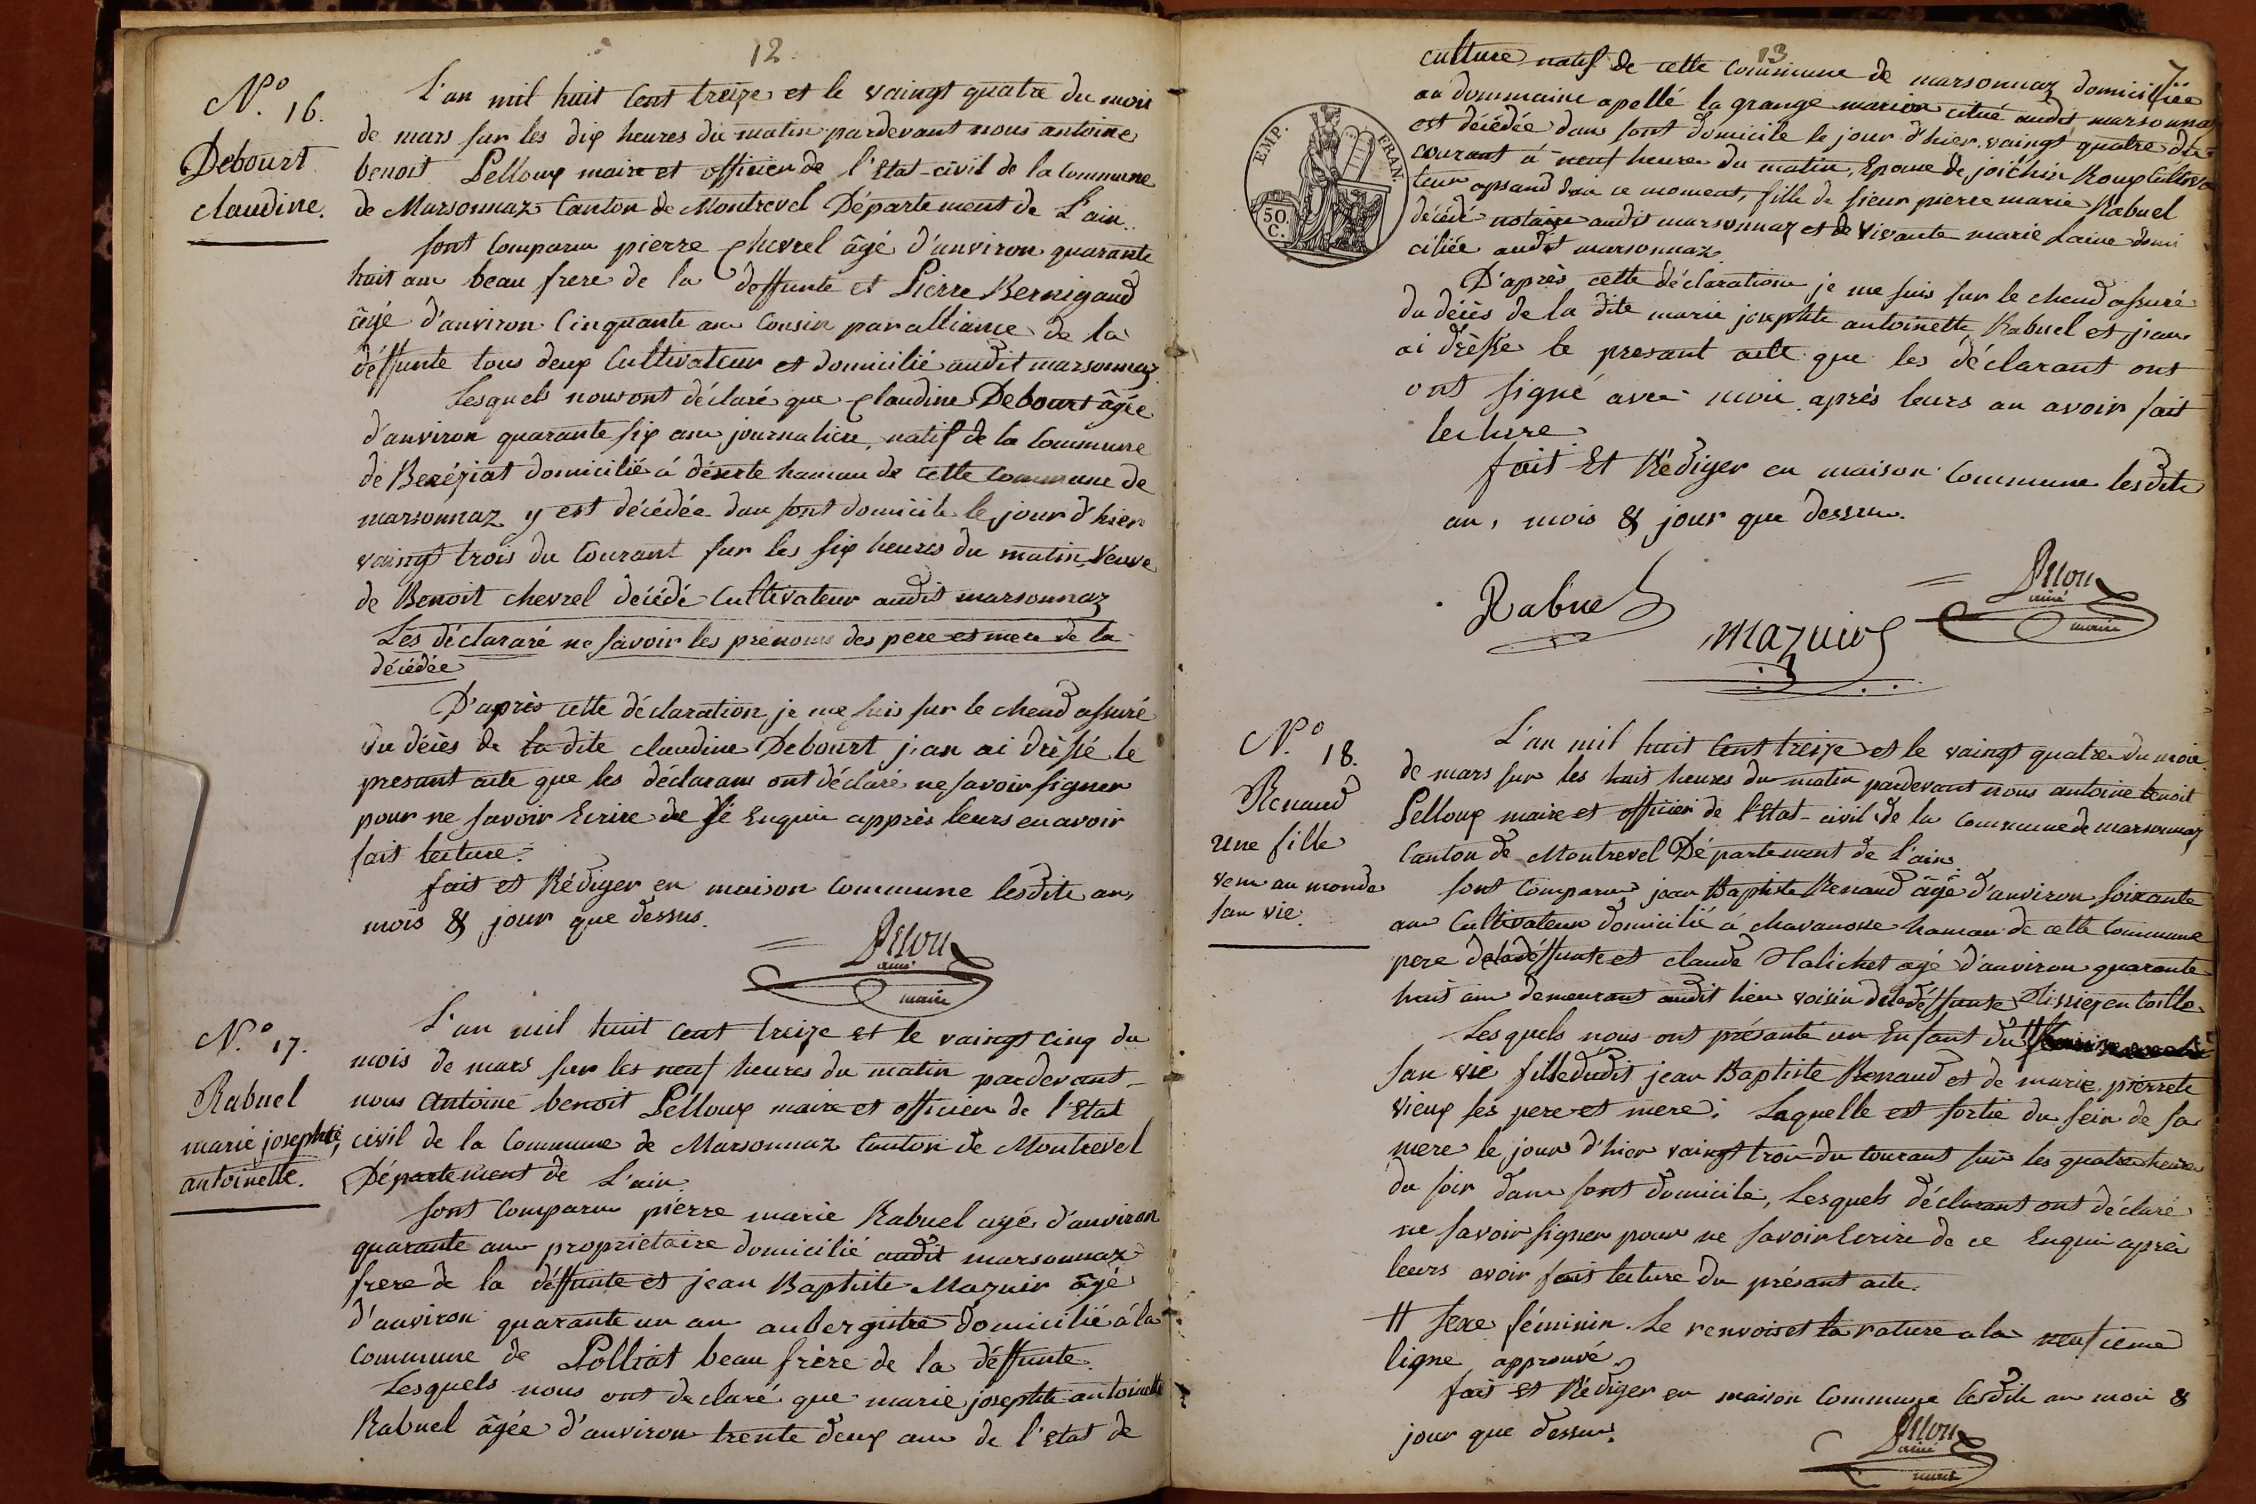 12.
N.º 16.
Debourt
claudine.
L'an mil huit Cent treize et le vaingt quatre du mois
de mars sur les dix heures du matin pardevant nous antoine
benoit Pelloux maire et officier de l'Etat-civil de la Commune
de Marsonnaz Canton de Montrevel Département de L'ain.
sont Comparu pierre Chevrel âgé d'anviron quarante
huit ans beau frere de la deffunte et Pierre Bernigaud
âgé d'anviron Cinquante ans Cousin par alliance de la
déffunte tous deux Cultivateur et domicilié audit marsonnaz.
Lesquels nous ont déclaré que Claudine Debourt âgée
d'anviron quarante six ans journaliere, natif de la Commune
de Beréziat domicilié á déserte hamau de cette Commune de
marsonnaz y est décédée dans sont domicile le jour d'hier
vaingt trois du Courant sur les six heures du matin, Veuve
de Benoit chevrel décédé Cultivateur audit marsonnaz
Les déclararé ne savoir les prénoms des pere et mere de la
décédée
D'après cette déclaration je me suis sur le cheud assuré
du décès de la dite claudine Debourt j'an ai drèssé le
presant acte que les déclarans ont déclaré ne savoir signer
pour ne savoir Ecrire de se Enquir apprès leurs en avoir
fait lecture.
fait et Rédiger en maison Commune lesdite an,
mois & jour que dessus.
Pelloux
ainé
maire
N.º 17.
Rabuel
marie josephte,
antoinette.
L'an mil huit cent treize et le vaingt cinq du
mois de mars sur les neuf heures du matin pardevant
nous antoine benoit Pelloux maire et officier de l'Etat
civil de la Commune de Marsonnaz Canton de Montrevel
Département de L'ain.
sont Comparu pierre marie Rabuel agé d'anviron
quarante ans proprietaire domicilié audit marsonnaz
frere de la déffunte et jean Baptiste Mazuir âgé
d'anviron quarante un an aubergiste domicilié á la
Commune de Polliat beau frère de la déffunte.
Lesquels nous ont declaré que marie josephte antoinette
Rabuel âgée d'anviron trente deux ans de l'etat de
13
7
EMP. FRAN.
50
C.
culture natif de cette Commune de marsonnaz domiciliée
au dommaine apellé la grange marion citué audit marsonnaz
est décédée dans sont domicile le jour d'hier vaingt quatre du
courant á neuf heures du matin, Epouse de joichin Roux Cultiva
teur apsand dan ce moment, fille de sieur pierre marie Rabuel
décédé notaire audit marsonnaz et de Vivante marie Laine domi
ciliée audit marsonnaz.
D'après cette déclaration je me suis sur le cheud assuré
du décès de la dite marie josephte antoinette Rabuel et j'ean
ai drèssé le presant acte que les déclarant ont
ont signé avec moi après leurs an avoir fait
lecture
fait Et Rédiger en maison Commune lesdite
an, mois & jour que dessus.
Rabuel
Mazuir
Pelloux
ainé
maire
N.º 18.
Renaud
une fille
venu au monde
san vie.
L'an mil huit Cent treize et le vaingt quatre du mois
de mars sur les huit heures du matin pardevant nous antoine benoit
Pelloux maire et officier de l'Etat-civil de la Commune de marsonnaz
Canton de Montrevel Département de L'ain.
sont Comparu jean Baptiste Renaud âgé d'anviron soixante
ans Cultivateur domicilié á chavanosse hamau de cette Commune
pere de la déffunte et claude Halichet agé d'anviron quarante
huit ans demeurant audit lieu voisin de la déffunte Tissiez en toille
Lesquels nous ont présanté un Enfant du #
san vie fille dudit jean Baptiste Renaud et de marie pierrete
vieux ses pere et mere; Laquelle est sortie du sein de sa
mere le jour d'hier vaingt trois du courant sur les quatre heures
du soir dans sont domicile, Lesquels déclarant ont déclaré
ne savoir signer pour ne savoir Ecrire de ce Enquir après
leurs avoir fait lecture du présant acte.
# sexe féminin. Le renvois et la rature a la neufieme
ligne approuvé
fait Et Rédiger en maison Commune lesdite an mois &
jour que dessus.
Pelloux
ainé
maire